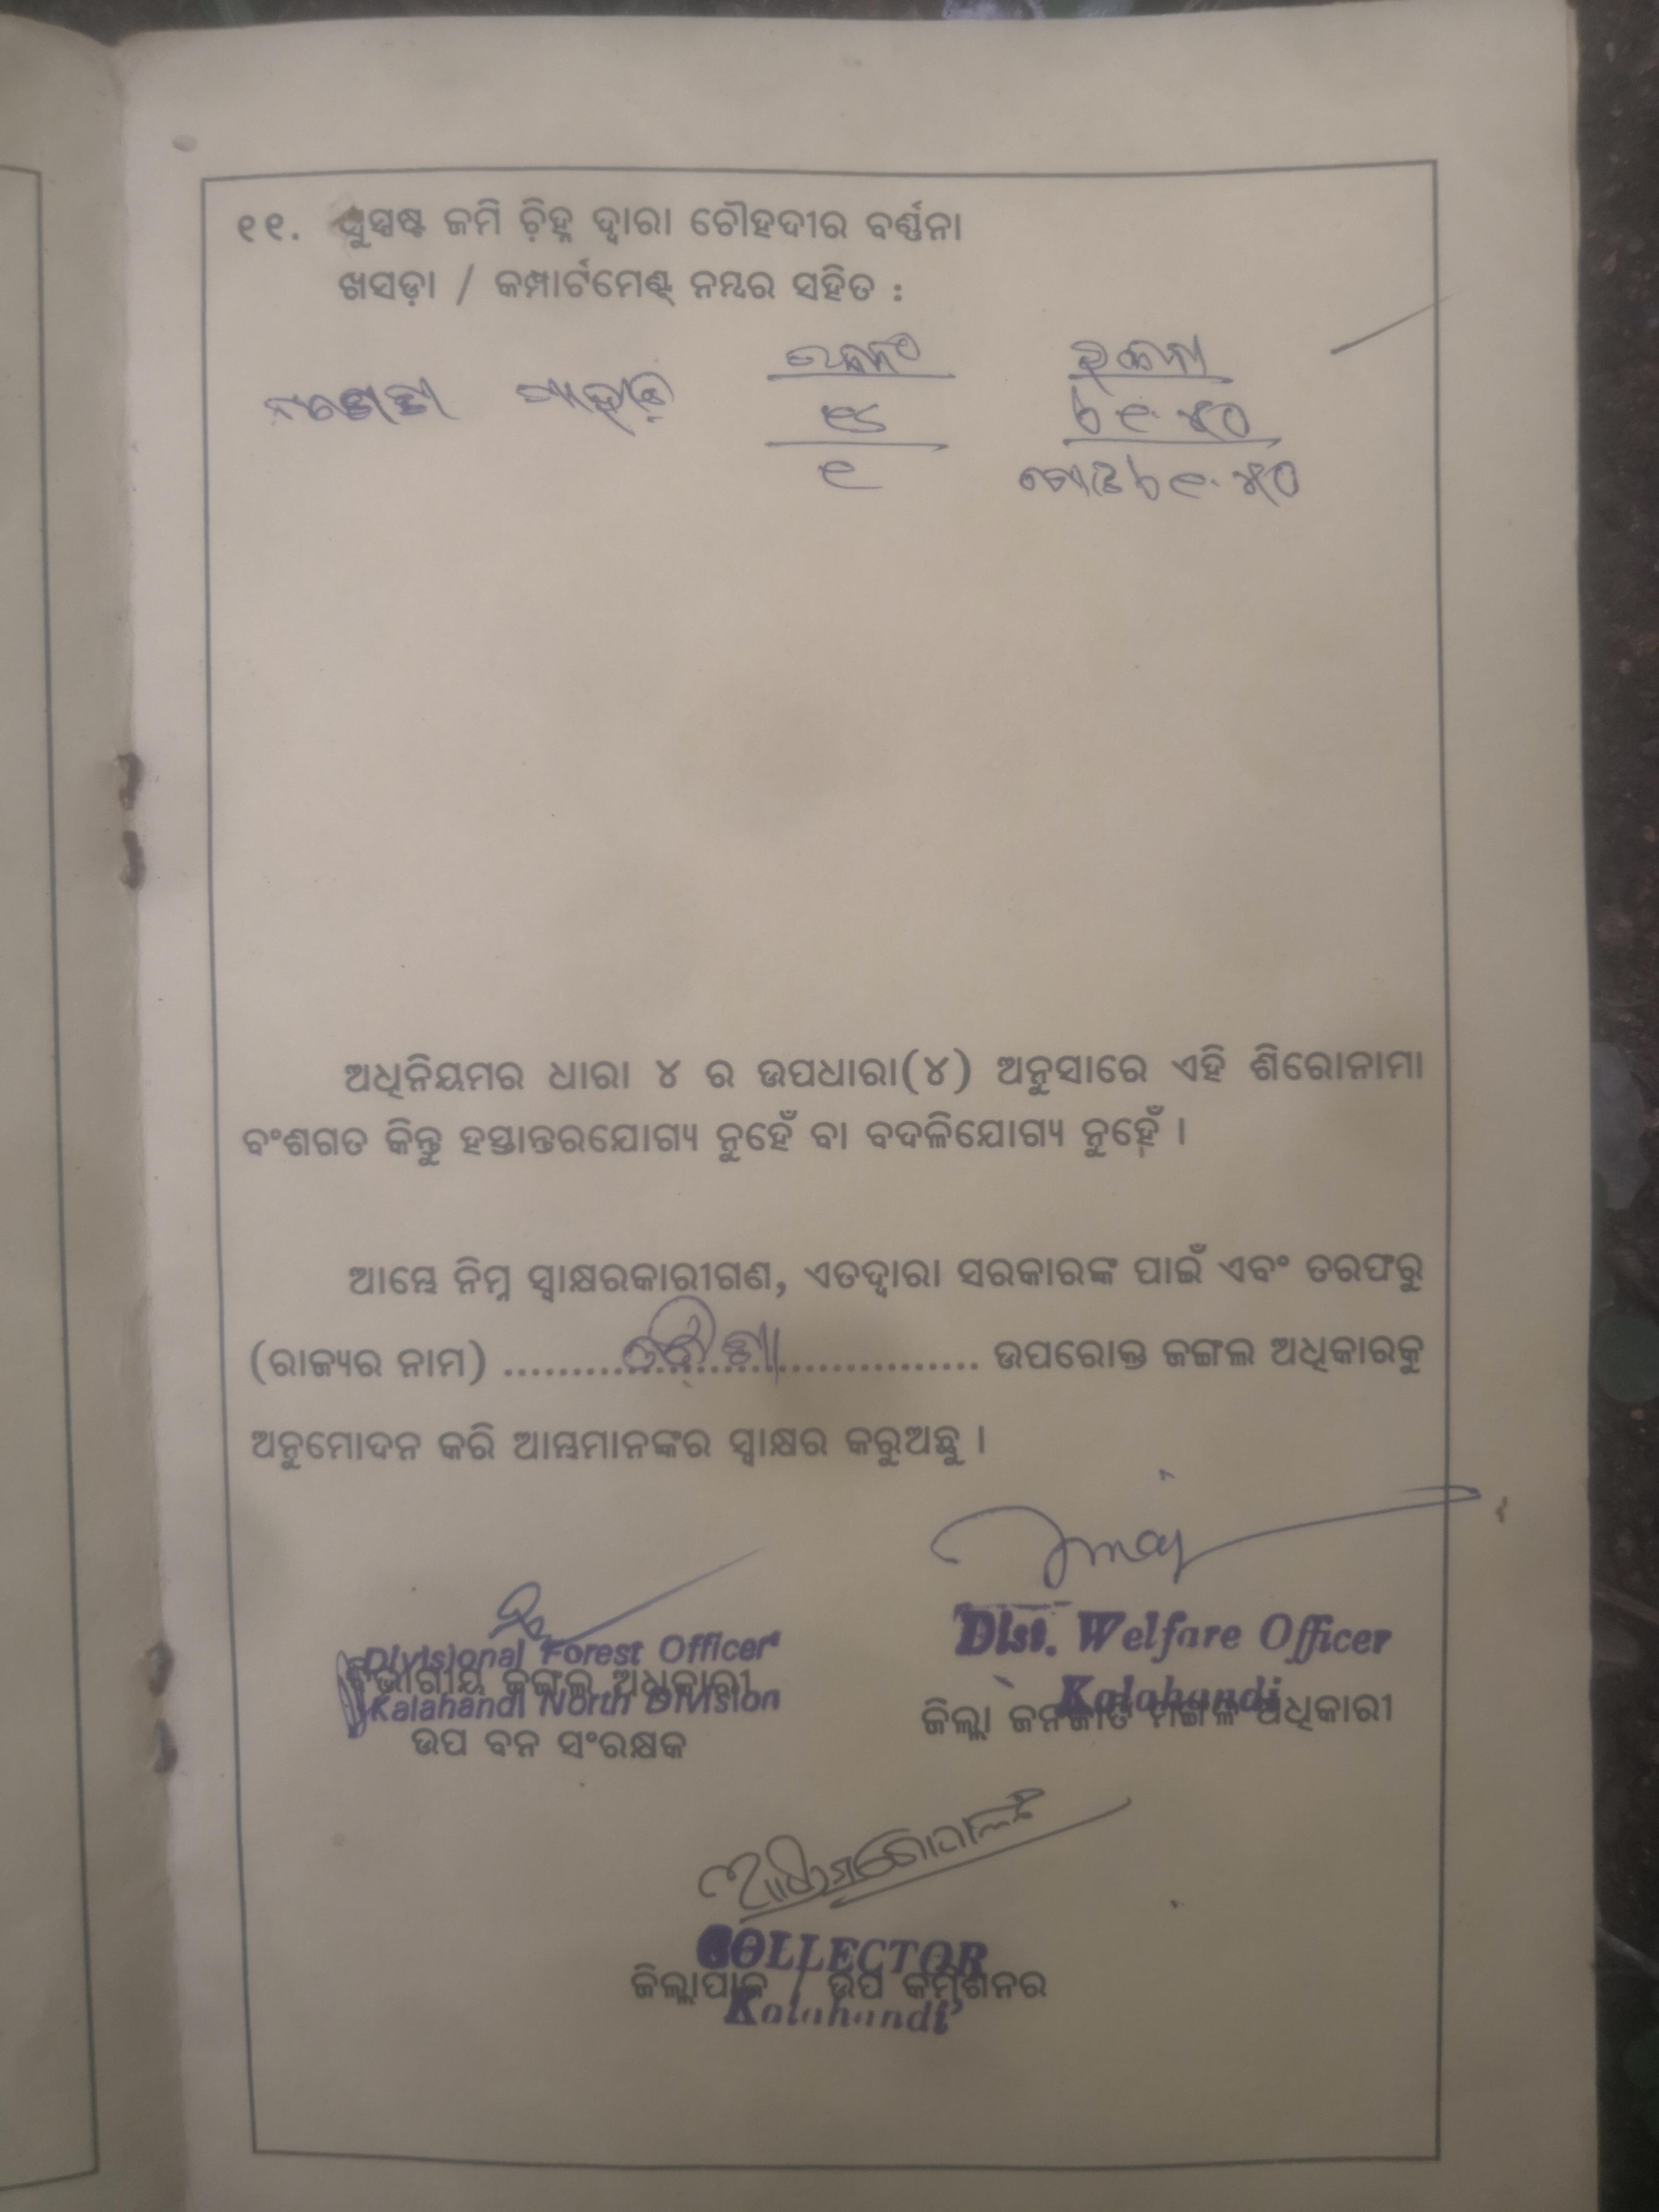 ୧୧. ସୁସ୍ପଷ୍ଟ ଜମି ଚ଼ିହ୍ନ ଦ୍ଵାରା ଚୌହଦୀର ବର୍ଣ୍ଣନା
ଖସଡ଼ା / କମ୍ପାର୍ଟମେଣ୍ଟ୍ ନମ୍ବର ସହିତ :
ରକବା
୧
ଅଧିନିୟମର ଧାରା ୪ ର ଉପଧାରା(୪) ଅନୁସାରେ ଏହି ଶିରୋନାମା
ବଂଶଗତ କିନ୍ତୁ ହସ୍ତାନ୍ତରଯୋଗ୍ୟ ନୁହେଁ ବା ବଦଳିଯୋଗ୍ୟ ନୁହେଁ ।
ଆମ୍ଭେ ନିମ୍ନ ସ୍ୱାକ୍ଷରକାରୀଗଣ, ଏତଦ୍ୱାରା ସରକାରଙ୍କ ପାଇଁ ଏବଂ ତରଫରୁ
(ରାଜ୍ୟର ନାମ) ........ ଓଡ଼ିଶା ........ ଉପରୋକ୍ତ ଜଙ୍ଗଲ ଅଧିକାରକୁ
ଅନୁମୋଦନ କରି ଆମ୍ଭମାନଙ୍କର ସ୍ୱାକ୍ଷର କରୁଅଛୁ ।
Divisional Forest Officer
ବିଭାଗୀୟ ଜଙ୍ଗଲ ଅଧିକାରୀ
Kalahandi North Division
ଉପ ବନ ସଂରକ୍ଷକ
Dist. Welfare Officer
Kalahandi
ଜିଲ୍ଲା ଜନଜାତି ମଙ୍ଗଳ ଅଧିକାରୀ
COLLECTOR
ଜିଲ୍ଲାପାଳ / ଉପ କମିଶନର
Kalahandi